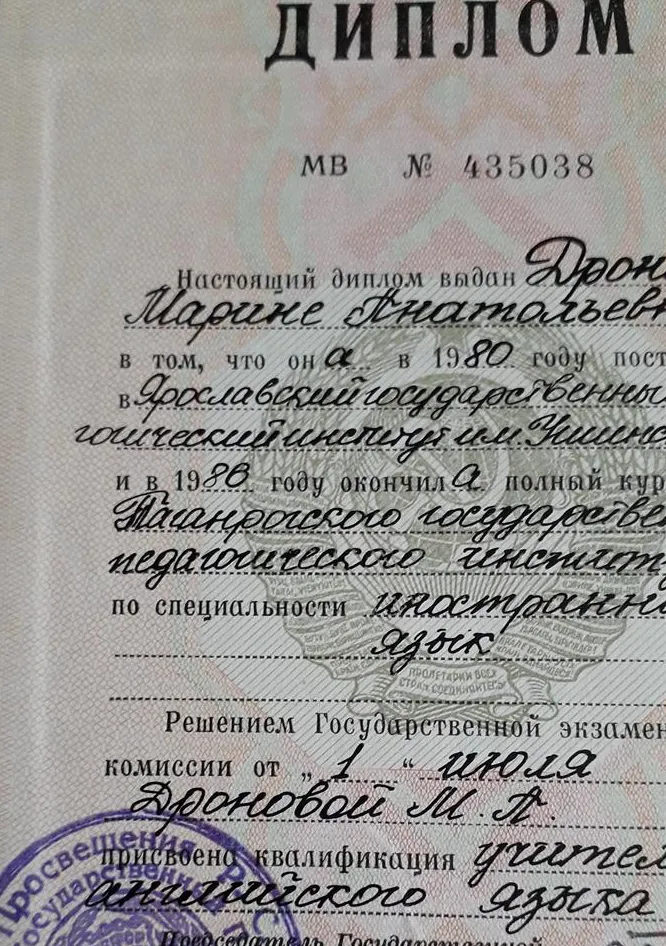 ДИПЛОМ
МВ № 435038
Настоящий диплом выдан Дрон
Марине Анатольев
в том, что она в 1980 году пост
в Ярославский государственны
гогический институт им. Ушинс
и в 1986 году окончила полный кур
Таганрогского государстве
педагогического институт
по специальности иностранн
язык
ПРОЛЕТАРИИ ВСЕХ
СТРАН, СОЕДИНЯЙТЕСЬ!
Решением Государственной экзамен
комиссии от „ 1 “ июля
Дроновой М. А.
присвоена квалификация учител
английского языка
Просвещения РСФС
Государственный
Председатель Государственной